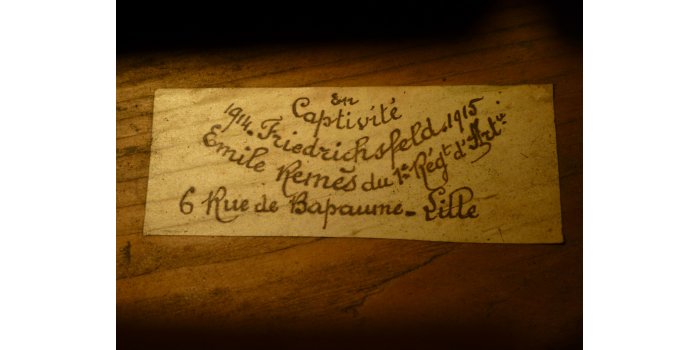 En
Captivité
1914. Friedrichsfeld. 1915
Emile Remès du 1er Régt d'Artie
6 Rue de Bapaume - Lille